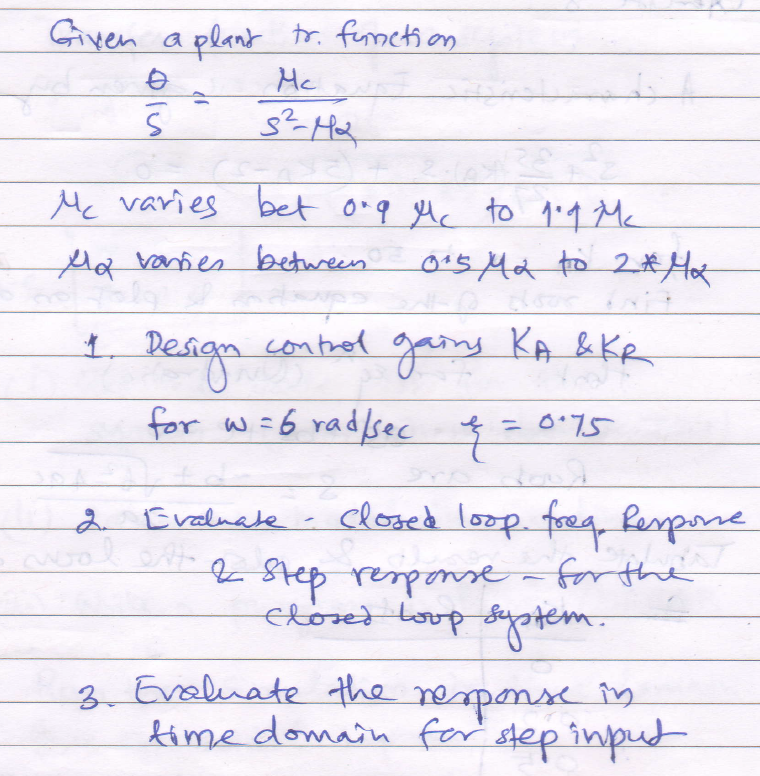 Given a plant tr. function
θ/S = Mc/S²-Mα
Mc varies bet 0.9 Mc to 1.1 Mc
Mα varies between 0.5 Mα to 2*Mα
1. Design control gains KA & KR
for w = 6 rad/sec ξ = 0.75
2. Evaluate - Closed loop. freq. Response
& Step response - for the
closed loop system.
3. Evaluate the response in
time domain for step input